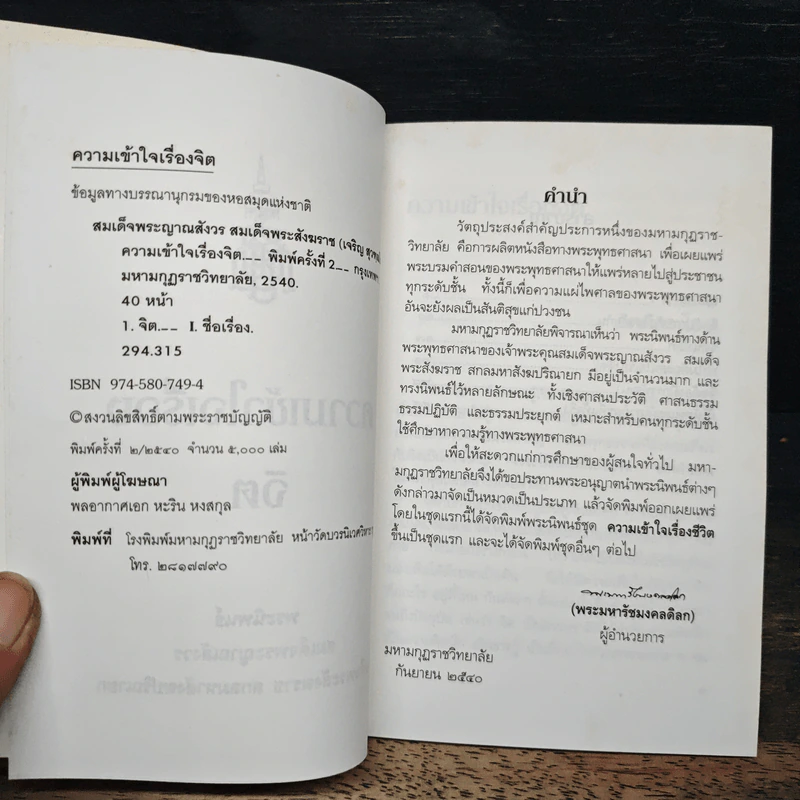 ความเข้าใจเรื่องจิต
ข้อมูลทางบรรณานุกรมของหอสมุดแห่งชาติ
สมเด็จพระญาณสังวร สมเด็จพระสังฆราช (เจริญ
ความเข้าใจเรื่องจิต.__ พิมพ์ครั้งที่ 2__
มหามกุฏราชวิทยาลัย, 2540.
40 หน้า
1. จิต.__ I. ชื่อเรื่อง.
294.315
ISBN 974-580-749-4
©สงวนลิขสิทธิ์ตามพระราชบัญญัติ
พิมพ์ครั้งที่ ๒/๒๕๔๐ จำนวน ๕,๐๐๐ เล่ม
ผู้พิมพ์ผู้โฆษณา
พลอากาศเอก หะริน หงสกุล
พิมพ์ที่ โรงพิมพ์มหามกุฏราชวิทยาลัย หน้าวัดบวรนิเวศวิหาร
โทร. ๒๘๑๗๗๙๐
คำนำ
วัตถุประสงค์สำคัญประการหนึ่งของมหามกุฏราช-
วิทยาลัย คือการผลิตหนังสือทางพระพุทธศาสนา เพื่อเผยแพร่
พระบรมคำสอนของพระพุทธศาสนาให้แพร่หลายไปสู่ประชาชน
ทุกระดับชั้น ทั้งนี้ก็เพื่อความแผ่ไพศาลของพระพุทธศาสนา
อันจะยังผลเป็นสันติสุขแก่ปวงชน
มหามกุฏราชวิทยาลัยพิจารณาเห็นว่า พระนิพนธ์ทางด้าน
พระพุทธศาสนาของเจ้าพระคุณสมเด็จพระญาณสังวร สมเด็จ
พระสังฆราช สกลมหาสังฆปริณายก มีอยู่เป็นจำนวนมาก และ
ทรงนิพนธ์ไว้หลายลักษณะ ทั้งเชิงศาสนประวัติ ศาสนธรรม
ธรรมปฏิบัติ และธรรมประยุกต์ เหมาะสำหรับคนทุกระดับชั้น
ใช้ศึกษาหาความรู้ทางพระพุทธศาสนา
เพื่อให้สะดวกแก่การศึกษาของผู้สนใจทั่วไป มหา-
มกุฏราชวิทยาลัยจึงได้ขอประทานพระอนุญาตนำพระนิพนธ์ต่างๆ
ดังกล่าวมาจัดเป็นหมวดเป็นประเภท แล้วจัดพิมพ์ออกเผยแพร่
โดยในชุดแรกนี้ได้จัดพิมพ์พระนิพนธ์ชุด ความเข้าใจเรื่องชีวิต
ขึ้นเป็นชุดแรก และจะได้จัดพิมพ์ชุดอื่นๆ ต่อไป
(พระมหารัชมงคลดิลก)
ผู้อำนวยการ
มหามกุฏราชวิทยาลัย
กันยายน ๒๕๔๐